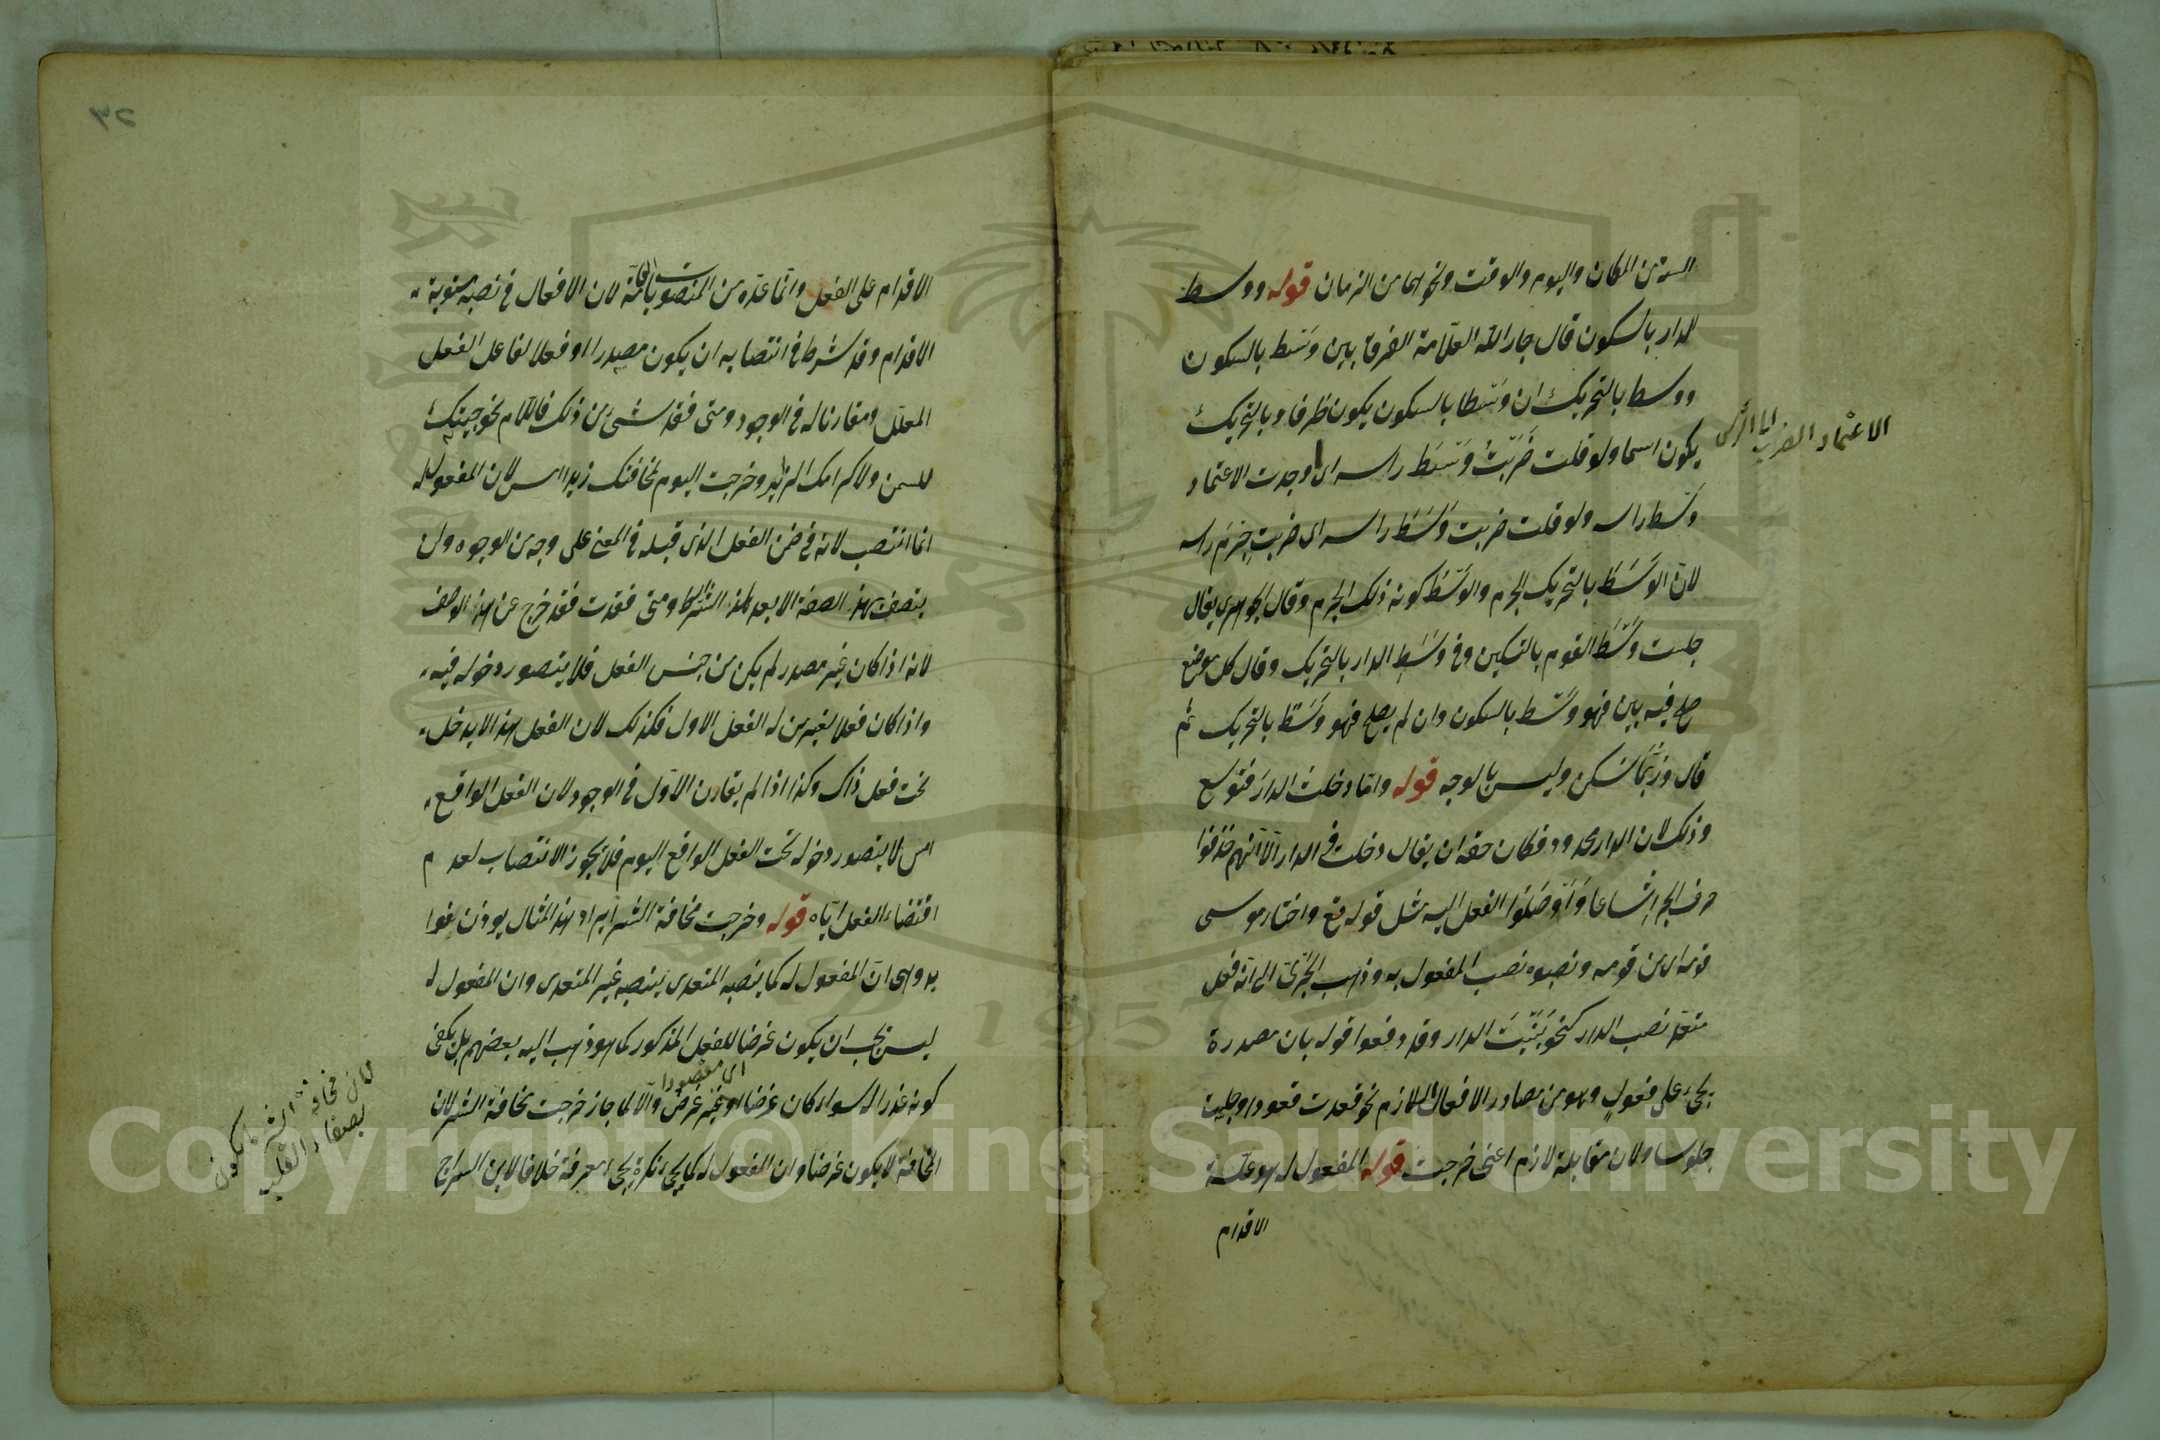 الستة من المكان واليوم والوقت ونحوهما من الزمان قوله ووسط
الدار بالسكون قال جار الله العلامة الفرق بين وسط بالسكون
ووسط بالتحريك ان وسطا بالسكون يكون ظرفا وبالتحريك
يكون اسما ولو قلت ضربت وسط راسه اى اوجدت الاعتماد
وسط راسه ولو قلت ضربت وسط راسه اى ضربت جزء راسه
لان الوسط بالتحريك الجرم والوسط كونه ذلك الجرم وقال الجوهرى يقال
جلست وسط القوم بالتسكين وفى وسط الدار بالتحريك وقال كل موضع
صلح فيه بين فهو وسط بالسكون وان لم يصلح فهو وسط بالتحريك ثم
قال وربما سكن وليس بالوجه قوله واما دخلت الدار فتوسع
وذلك لان الدار محدود فكان حقه ان يقال دخلت فى الدار الا انهم حذفوا
حرف الجر اتساعا واوصلوا الفعل اليه مثل قوله تع واختار موسى
قومه اى من قومه ونصبوه نصب المفعول به وذهب الجرمى الى انه فعل
متعد نصب الدار كنحو بنيت الدار وقد دفعوا قوله بان مصدره
يجىء على فعول وهو من مصادر الافعال اللازم نحو قعدت قعودا وجلست
جلوسا ولان مقابله لازم اعنى خرجت قوله المفعول له هو علة
الاقدام
الاعتماد الضرب
الاقدام على الفعل وانما عده من المنصوبات لان الافعال فى نصبه مستوية
الاقدام وقد شرط فى انتصابه ان يكون مصدرا وفعلا لفاعل الفعل
المعلل ومقارنا له فى الوجود ومتى فقد شئ من ذلك فاللام نحو جيتك
للسمن ولاكرامك الزائر وخرجت اليوم لمخافتك زيدا امس لان المفعول له
انما انتصب لانه فى ضمن الفعل الذى قبله فى المعنى على وجه من الوجوه ولن
يتصف بهذه الصفة الا بعد هذه الشرائط ومتى فقدت فقد خرج عن هذا الوصف
لانه اذا كان غير مصدر لم يكن من جنس الفعل فلا يتصور دخوله فيه
واذا كان فعلا لغير من له الفعل الاول فكذلك لان الفعل هذا لا يدخل
تحت فعل ذاك وكذا اذا لم يقارن الاول فى الوجود لان الفعل الواقع
امس لا يتصور دخوله تحت الفعل الواقع اليوم فلا يجوز الانتصاب لعدم
اقتضاء الفعل اياه قوله وخرجت مخافة الشر ايراد هذا المثال يوذن
وهى ان المفعول له كما ينصبه المتعدى ينصبه غير المتعدى وان المفعول له
ليس يجب ان يكون غرضا للفعل المذكور كما هو ذهب اليه بعضهم بل يكفى
كونه عذرا له سواء كان غرضا او غير غرض والا لما جاز خرجت مخافة الشر لان
اى مقصودا
المخافة لا يكون غرضا وان المفعول له كما يجىء نكرة يجىء معرفة خلافا لابن السراج
لان مخافة الشر لا يكون
Copyright © King Saud University
1957